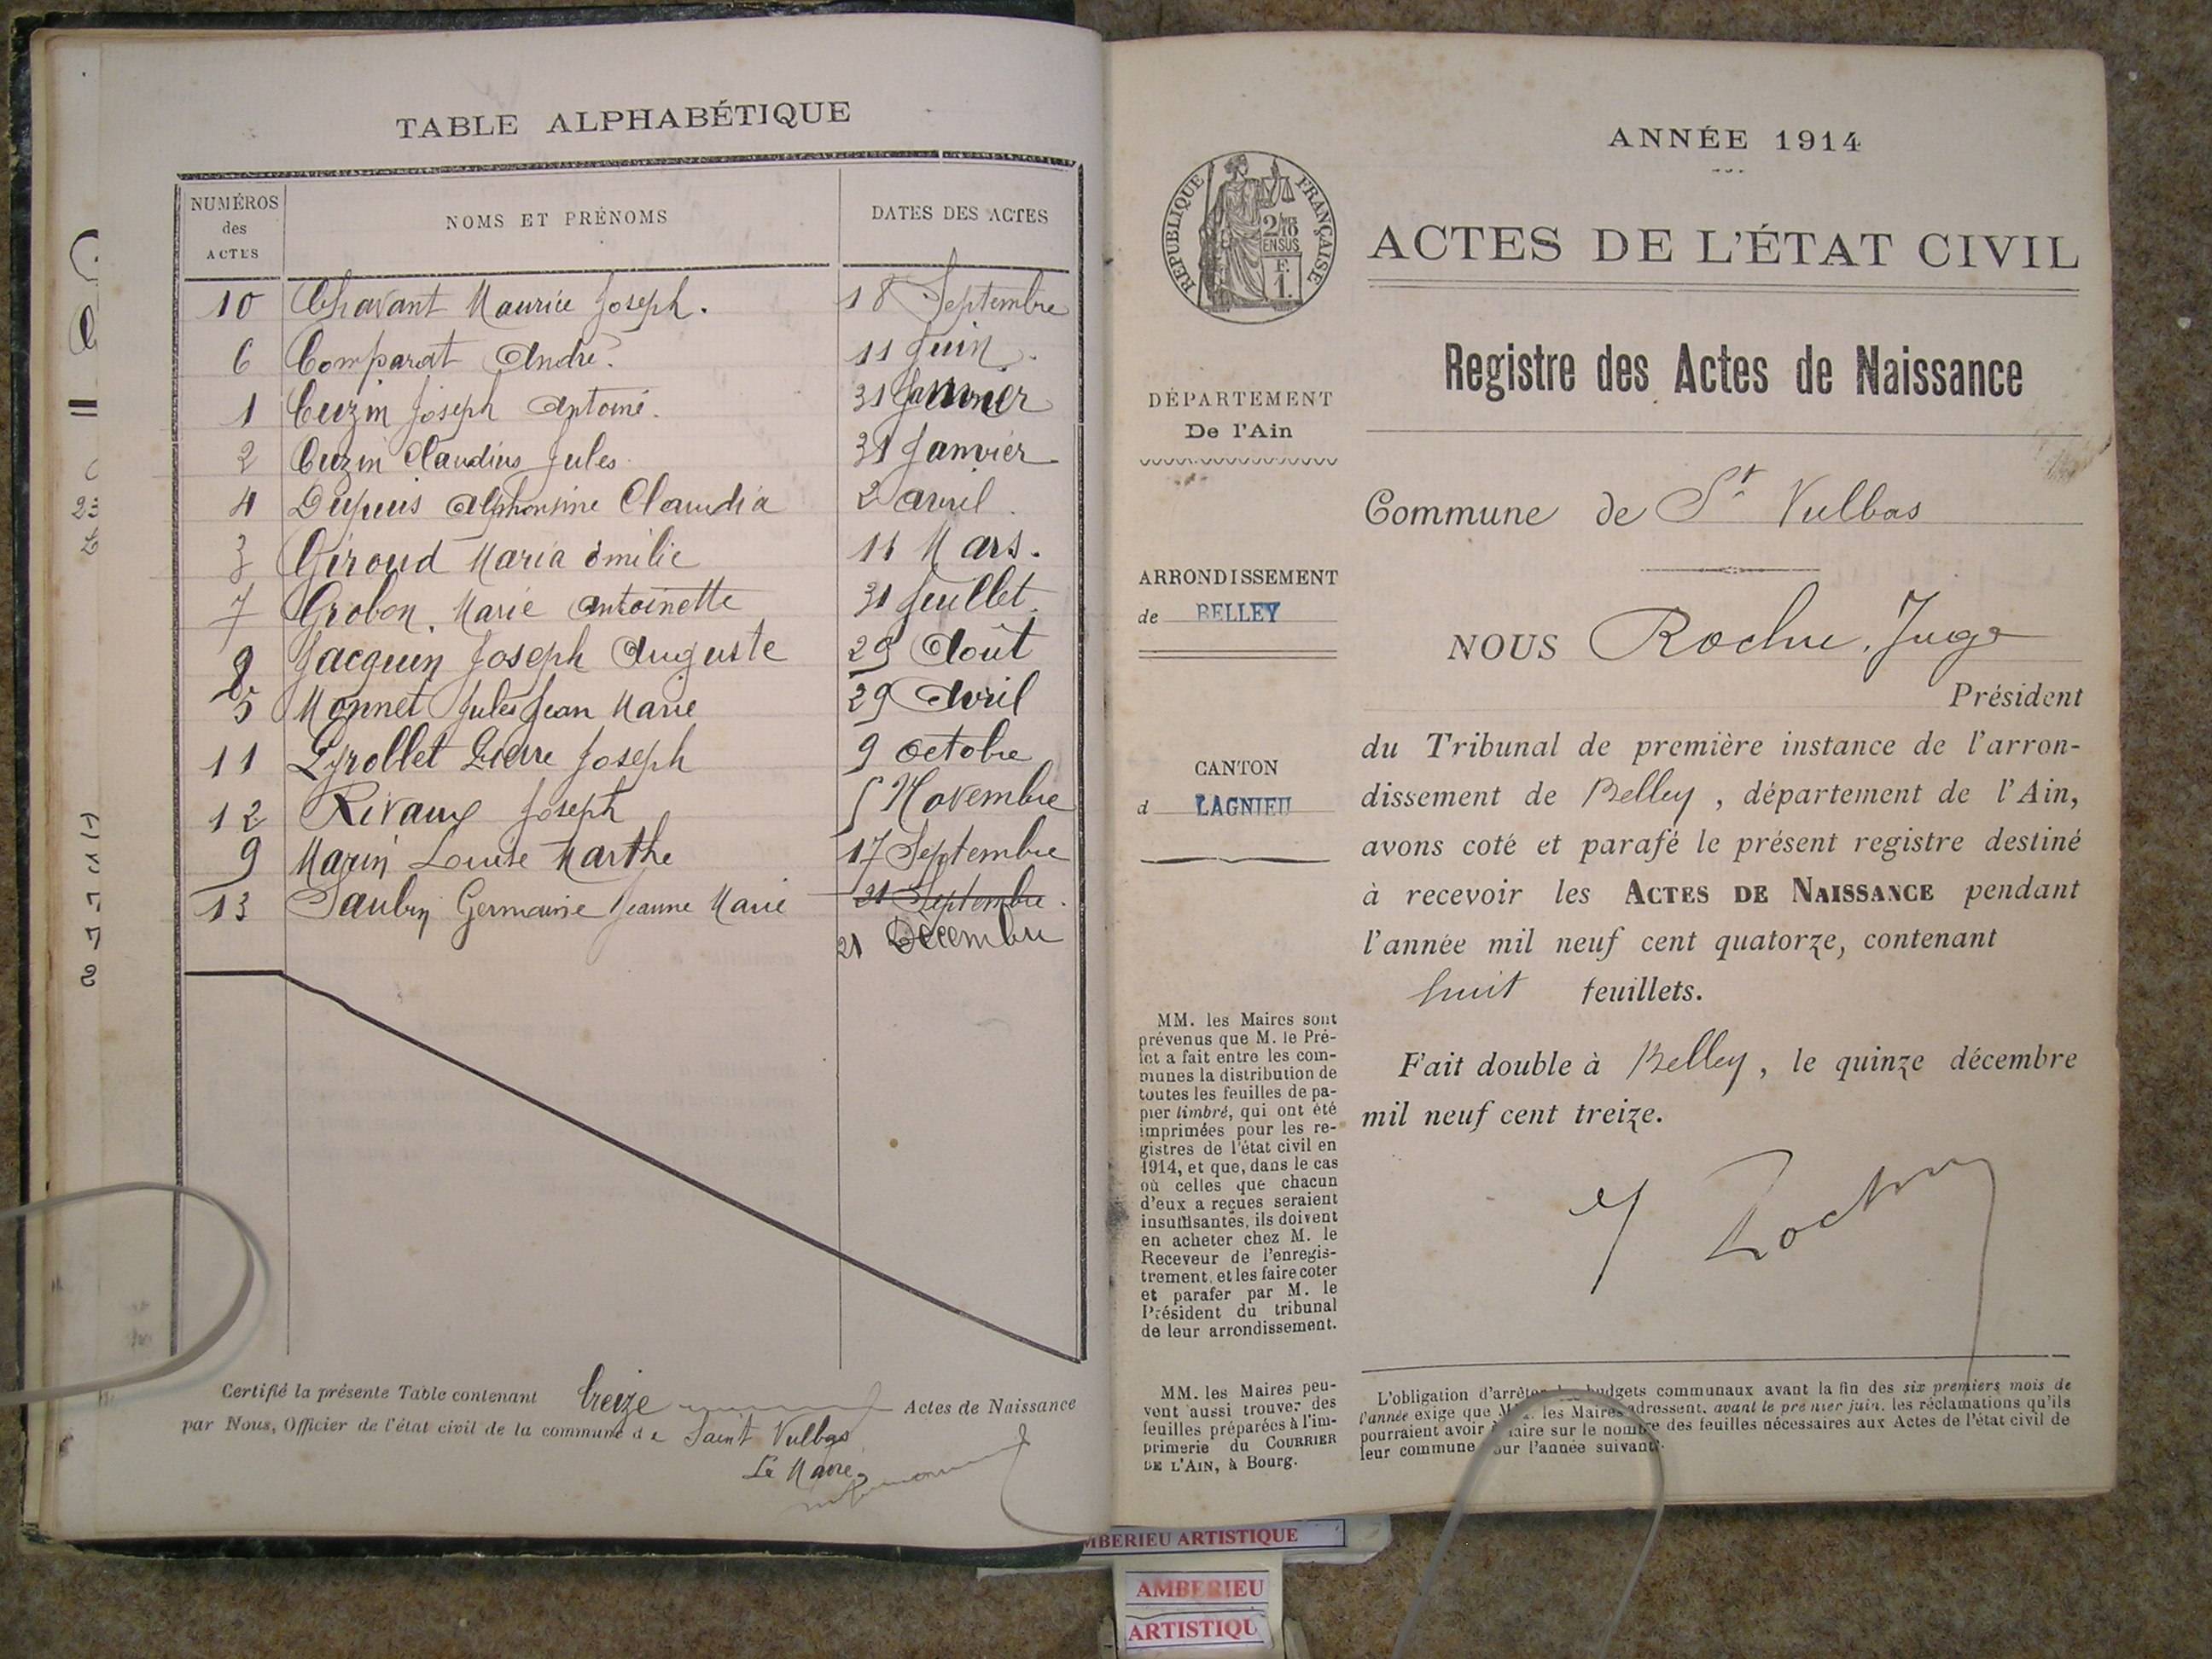 TABLE ALPHABÉTIQUE
NUMÉROS des ACTES NOMS ET PRÉNOMS DATES DES ACTES
10 Chavant Maurice Joseph. 18 Septembre
6 Comparat André. 11 Juin.
1 Cuzin Joseph Antoine. 31 Janvier
2 Cuzin Claudius Jules 31 Janvier
4 Dupuis Alphonsine Claudia 2 avril.
3 Giroud Maria Emilie 11 Mars.
7 Grobon. Marie Antoinette 31 Juillet.
8 Jacquin Joseph Auguste 29 Août
5 Monnet Jules Jean Marie 29 Avril
11 Pyrollet Pierre Joseph 9 octobre
12 Rivaux Joseph 5 Novembre
9 Marin Louise Marthe 17 Septembre
13 Saubry Germaine Jeanne Marie 21 Septembre.
21 Décembre
Certifié la présente Table contenant treize Actes de Naissance
par Nous, Officier de l'état civil de la commune de Saint Vulbas
Le Maire,
ANNÉE 1914
RÉPUBLIQUE FRANÇAISE
2/10 EN SUS
F. 1.
ACTES DE L'ÉTAT CIVIL
Registre des Actes de Naissance
DÉPARTEMENT
De l'Ain
Commune de St Vulbas
ARRONDISSEMENT
de BELLEY
NOUS Roche, Juge
Président
CANTON
d LAGNIEU
du Tribunal de première instance de l'arron-
dissement de Belley, département de l'Ain,
avons coté et parafé le présent registre destiné
à recevoir les ACTES DE NAISSANCE pendant
l'année mil neuf cent quatorze, contenant
huit feuillets.
Fait double à Belley, le quinze décembre
mil neuf cent treize.
MM. les Maires sont
prévenus que M. le Pré-
fet a fait entre les com-
munes la distribution de
toutes les feuilles de pa-
pier timbré, qui ont été
imprimées pour les re-
gistres de l'état civil en
1914, et que, dans le cas
où celles que chacun
d'eux a reçues seraient
insuffisantes, ils doivent
en acheter chez M. le
Receveur de l'enregis-
trement, et les faire coter
et parafer par M. le
Président du tribunal
de leur arrondissement.
MM. les Maires peu-
vent aussi trouver des
feuilles préparées à l'im-
primerie du COURRIER
DE L'AIN, à Bourg.
L'obligation d'arrêter les budgets communaux avant la fin des six premiers mois de
l'année exige que MM. les Maires adressent, avant le premier juin, les réclamations qu'ils
pourraient avoir à faire sur le nombre des feuilles nécessaires aux Actes de l'état civil de
leur commune pour l'année suivante.
MBERIEU ARTISTIQUE
AMBERIEU
ARTISTIQU